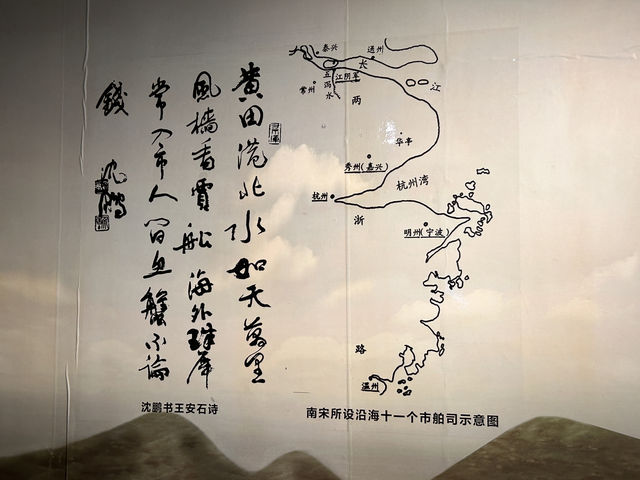 黄田港北水如天萬里
風檣看賈船海外珠犀
常入市人间魚蟹不論
錢
沈鵬
沈鹏书王安石诗
泰兴
通州
长
江
五泻水
江阴军
常州
两
华亭
秀州(嘉兴)
杭州
杭州湾
浙
明州(宁波)
路
温州
南宋所设沿海十一个市舶司示意图